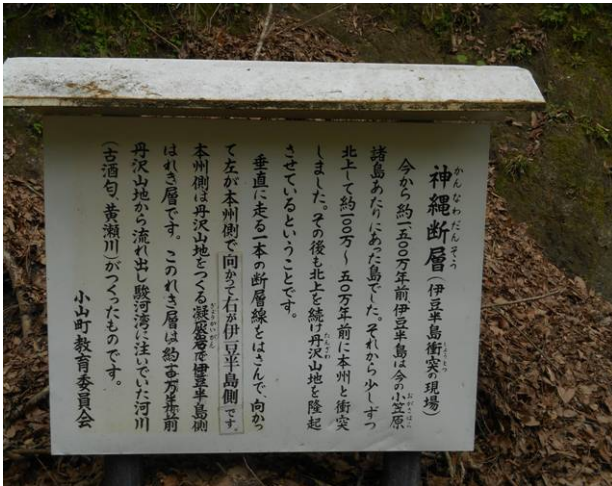 神縄断層(伊豆半島衝突の現場)
今から約一、五〇〇万年前、伊豆半島は今の小笠原
諸島あたりにあった島でした。それから少しずつ
北上して約一〇〇万〜五〇万年前に本州と衝突
しました。その後も北上を続け丹沢山地を隆起
させているということです。
垂直に走る一本の断層線をはさんで、向かっ
て左が本州側で向かって右が伊豆半島側です。
本州側は丹沢山地をつくる凝灰岩で伊豆半島側
はれき層です。このれき層は約 万年前
丹沢山地から流れ出し駿河湾に注いでいた河川
(古酒匂、黄瀬川)がつくったものです。
小山町教育委員会